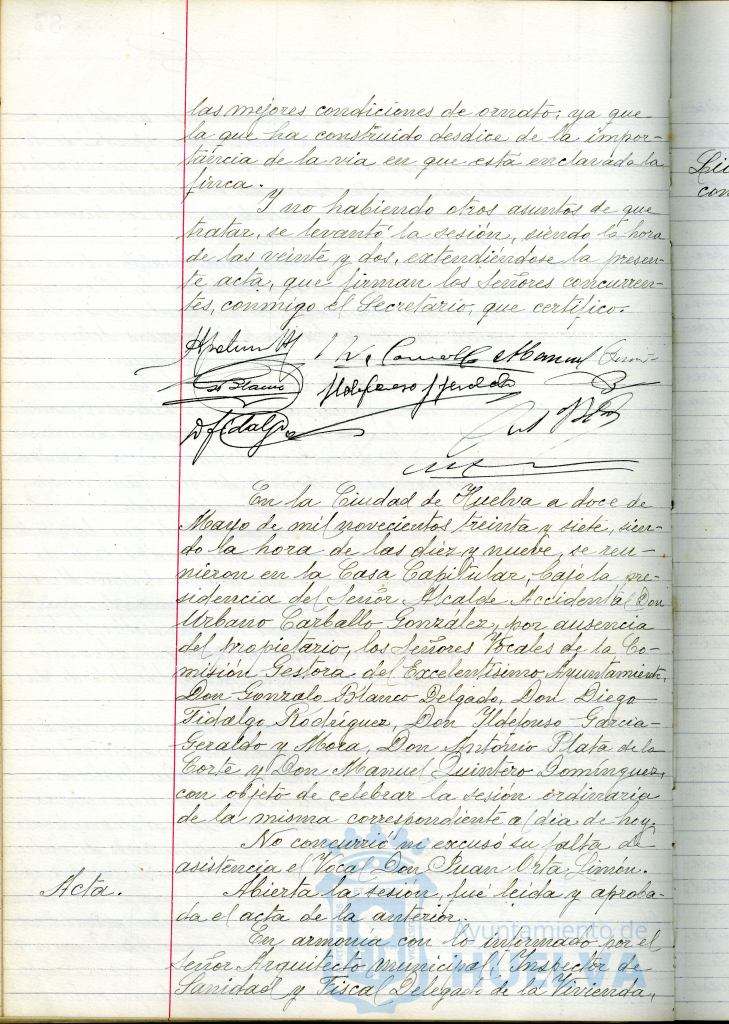 las mejores condiciones de ornato; ya que
la que ha construido desdice de la impor-
tancia de la via en que está enclavada la
finca.
Y no habiendo otros asuntos de que
tratar, se levantó la sesión, siendo la hora
de las veinte y dos, extendiéndose la presen-
te acta, que firman los Señores concurren-
tes, conmigo el Secretario, que certifico.
Manuel
Blanco Ildefonso Geraldo
D Fidalgo
En la Ciudad de Huelva a doce de
Mayo de mil novecientos treinta y siete, sien-
do la hora de las diez y nueve, se reu-
nieron en la Casa Capitular, bajo la pre-
sidencia del Señor Alcalde Accidental Don
Urbano Carballo González, por ausencia
del propietario, los Señores Vocales de la Co-
misión Gestora del Excelentísimo Ayuntamiento,
Don Gonzalo Blanco Delgado, Don Diego
Fidalgo Rodríguez, Don Ildefonso García-
Geraldo y Mora, Don António Plata de la
Corte y Don Manuel Quintero Domínguez,
con objeto de celebrar la sesión ordinaria
de la misma correspondiente al día de hoy.
No concurrió ni excusó su falta de
asistencia el Vocal Don Juan Orta Simón.
Acta. Abierta la sesión, fué leída y aproba-
da el acta de la anterior.
En armonía con lo informado por el
Señor Arquitecto municipal, Inspector de
Sanidad y Fiscal Delegado de la Vivienda,
Ayuntamiento de
HUELVA